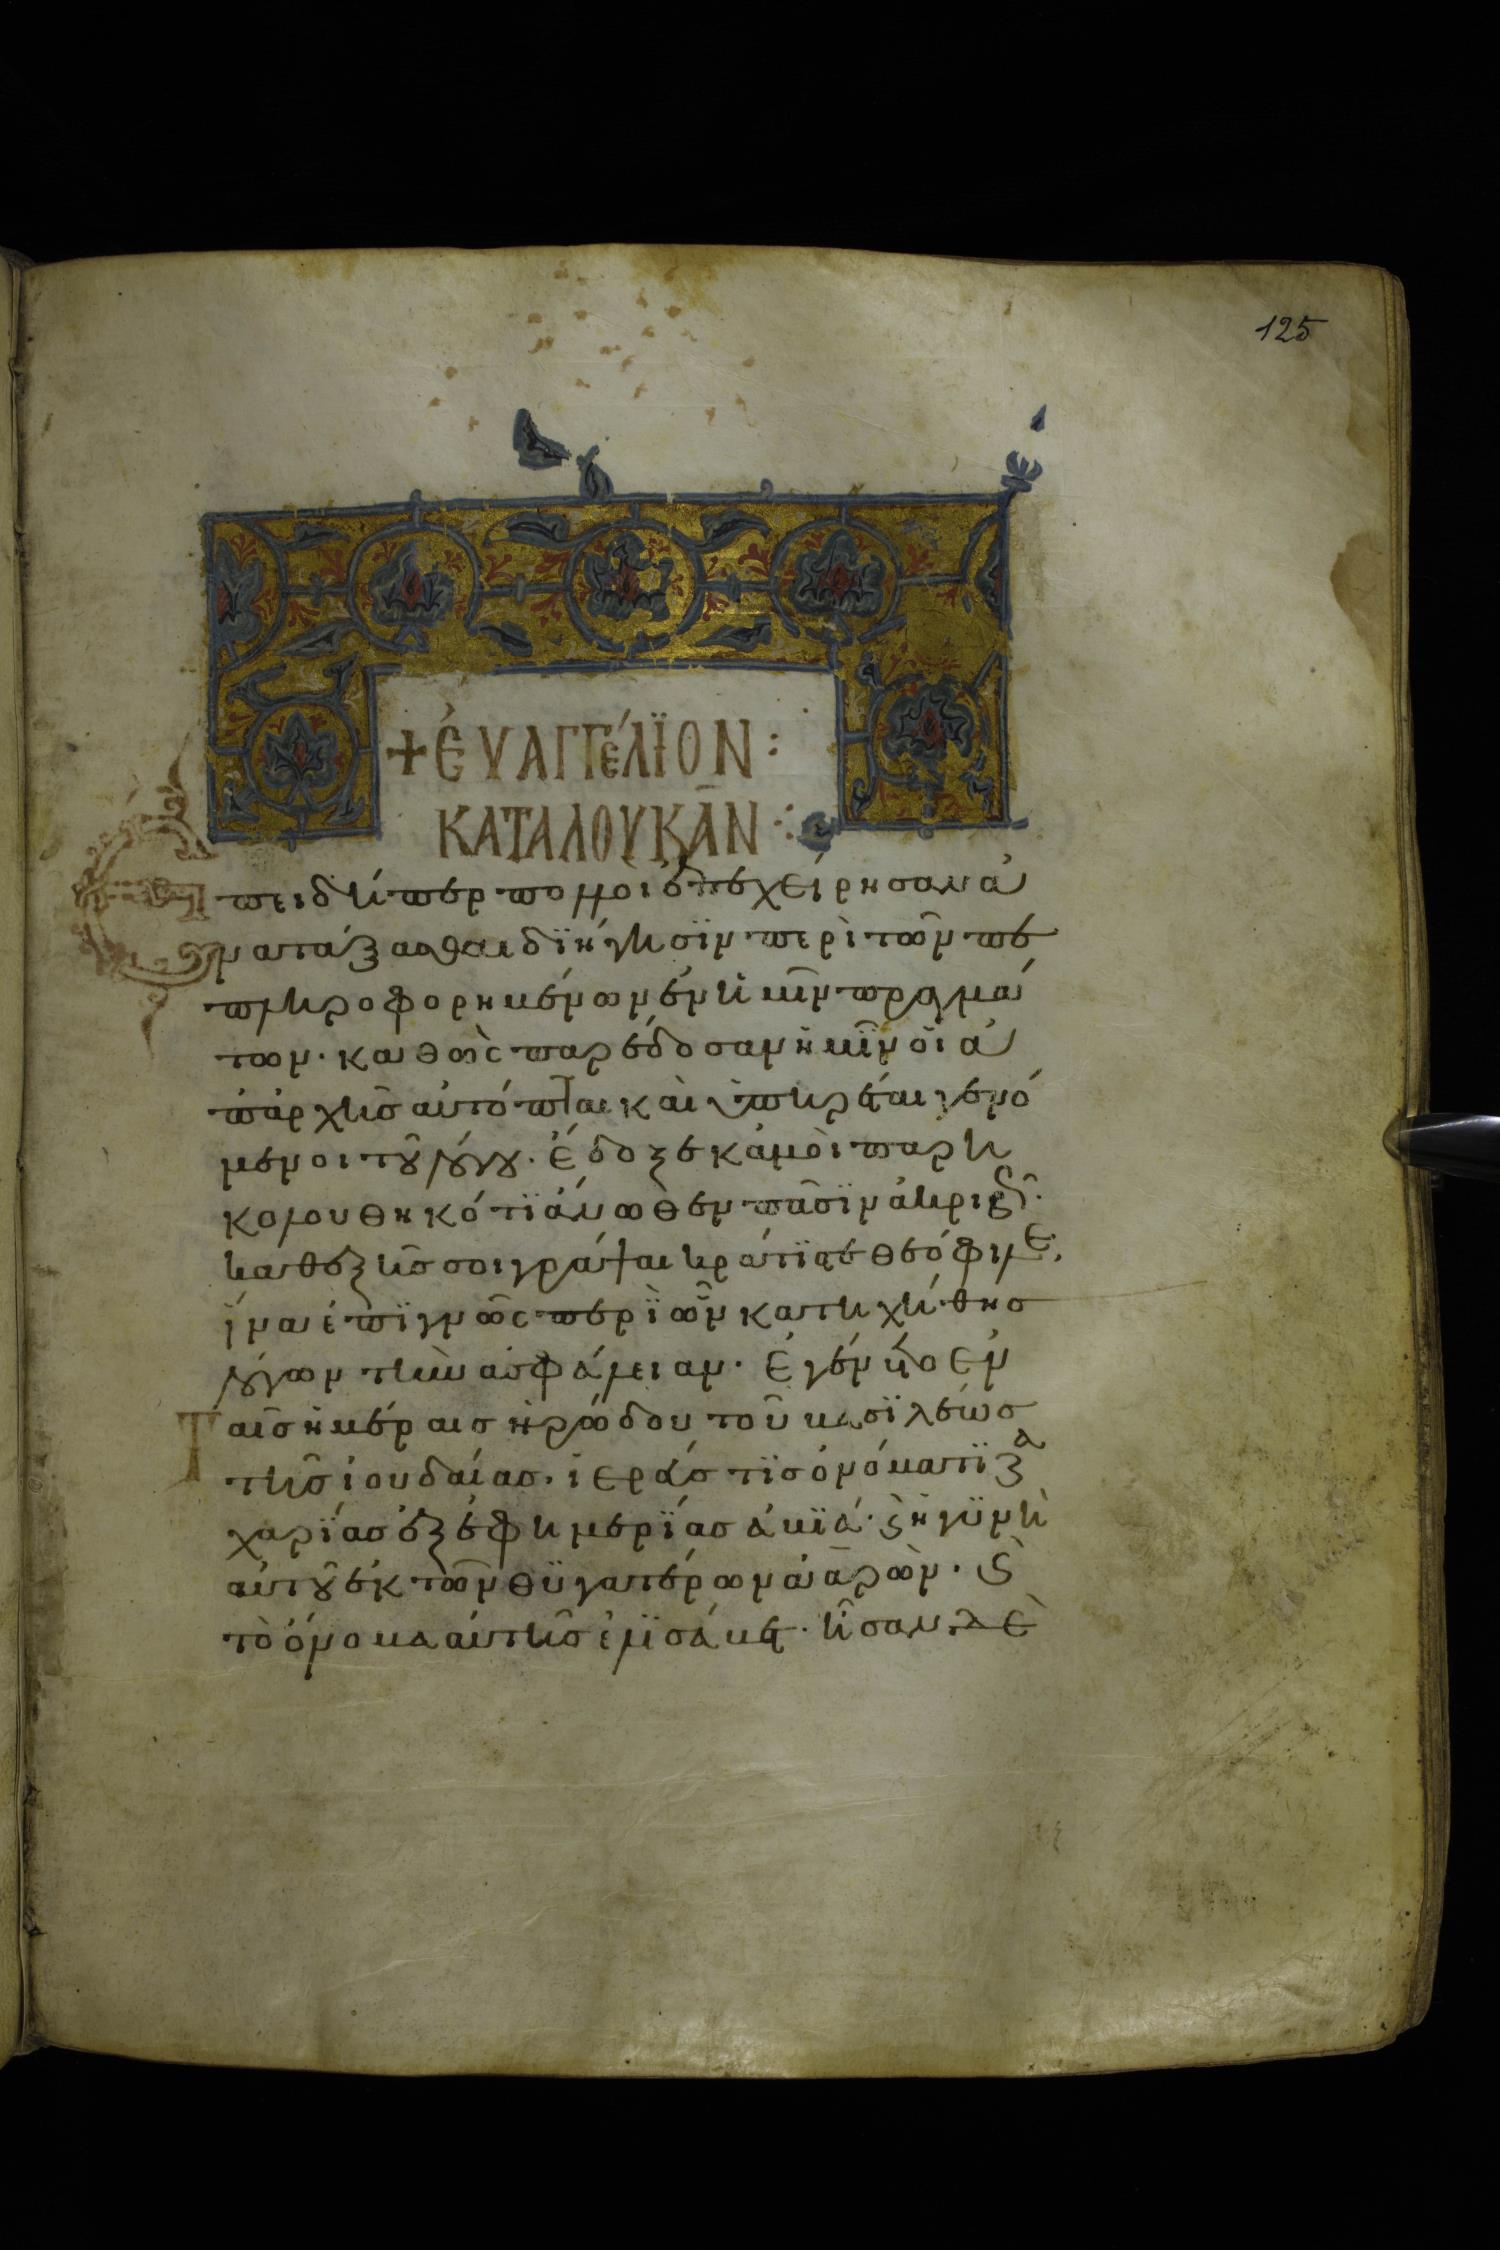 125
+ ἐυαγγέλϊον :
κατα λουκᾶν :
Ἐπειδήπερ πολλοὶ ἐπεχείρησαν ἀ
ναταξασθαι διήγησϊν περὶ τῶν πε
πληροφορημένων ἐν ἡμῖν πραγμά
των. καθὼς παρέδοσαν ἡμῖν οἱ ἀ
π' ἀρχῆς αὐτόπται καὶ ὑπηρέται γενό
μενοι τοῦ λόγου. ἔδοξε κἀμοὶ παρη
κολουθηκότϊ ἄνωθεν πᾶσϊν ἀκριβῶς.
καθεξῆς σοι γράψαι κράτϊστε θεόφιλε.
ἵνα ἐπϊγνῶς περὶ ὧν κατηχήθης
λόγων τὴν ἀσφάλειαν. Ἐγένετο ἐν
ταῖς ἡμέραις ἡρώδου τοῦ βασϊλέως
τῆς ἰουδαίας. ἱεράς τϊς ὀνόματϊ ζα
χαρϊας ἐξ ἐφημερϊας ἀβϊά. ϗ ἡ γϋνὴ
αὐτοῦ ἐκ τῶν θϋγατέρων ἀαρὼν. ϗ
τὸ ὄνομα αὐτῆς ἐλϊσάβετ. ἦσαν δὲ